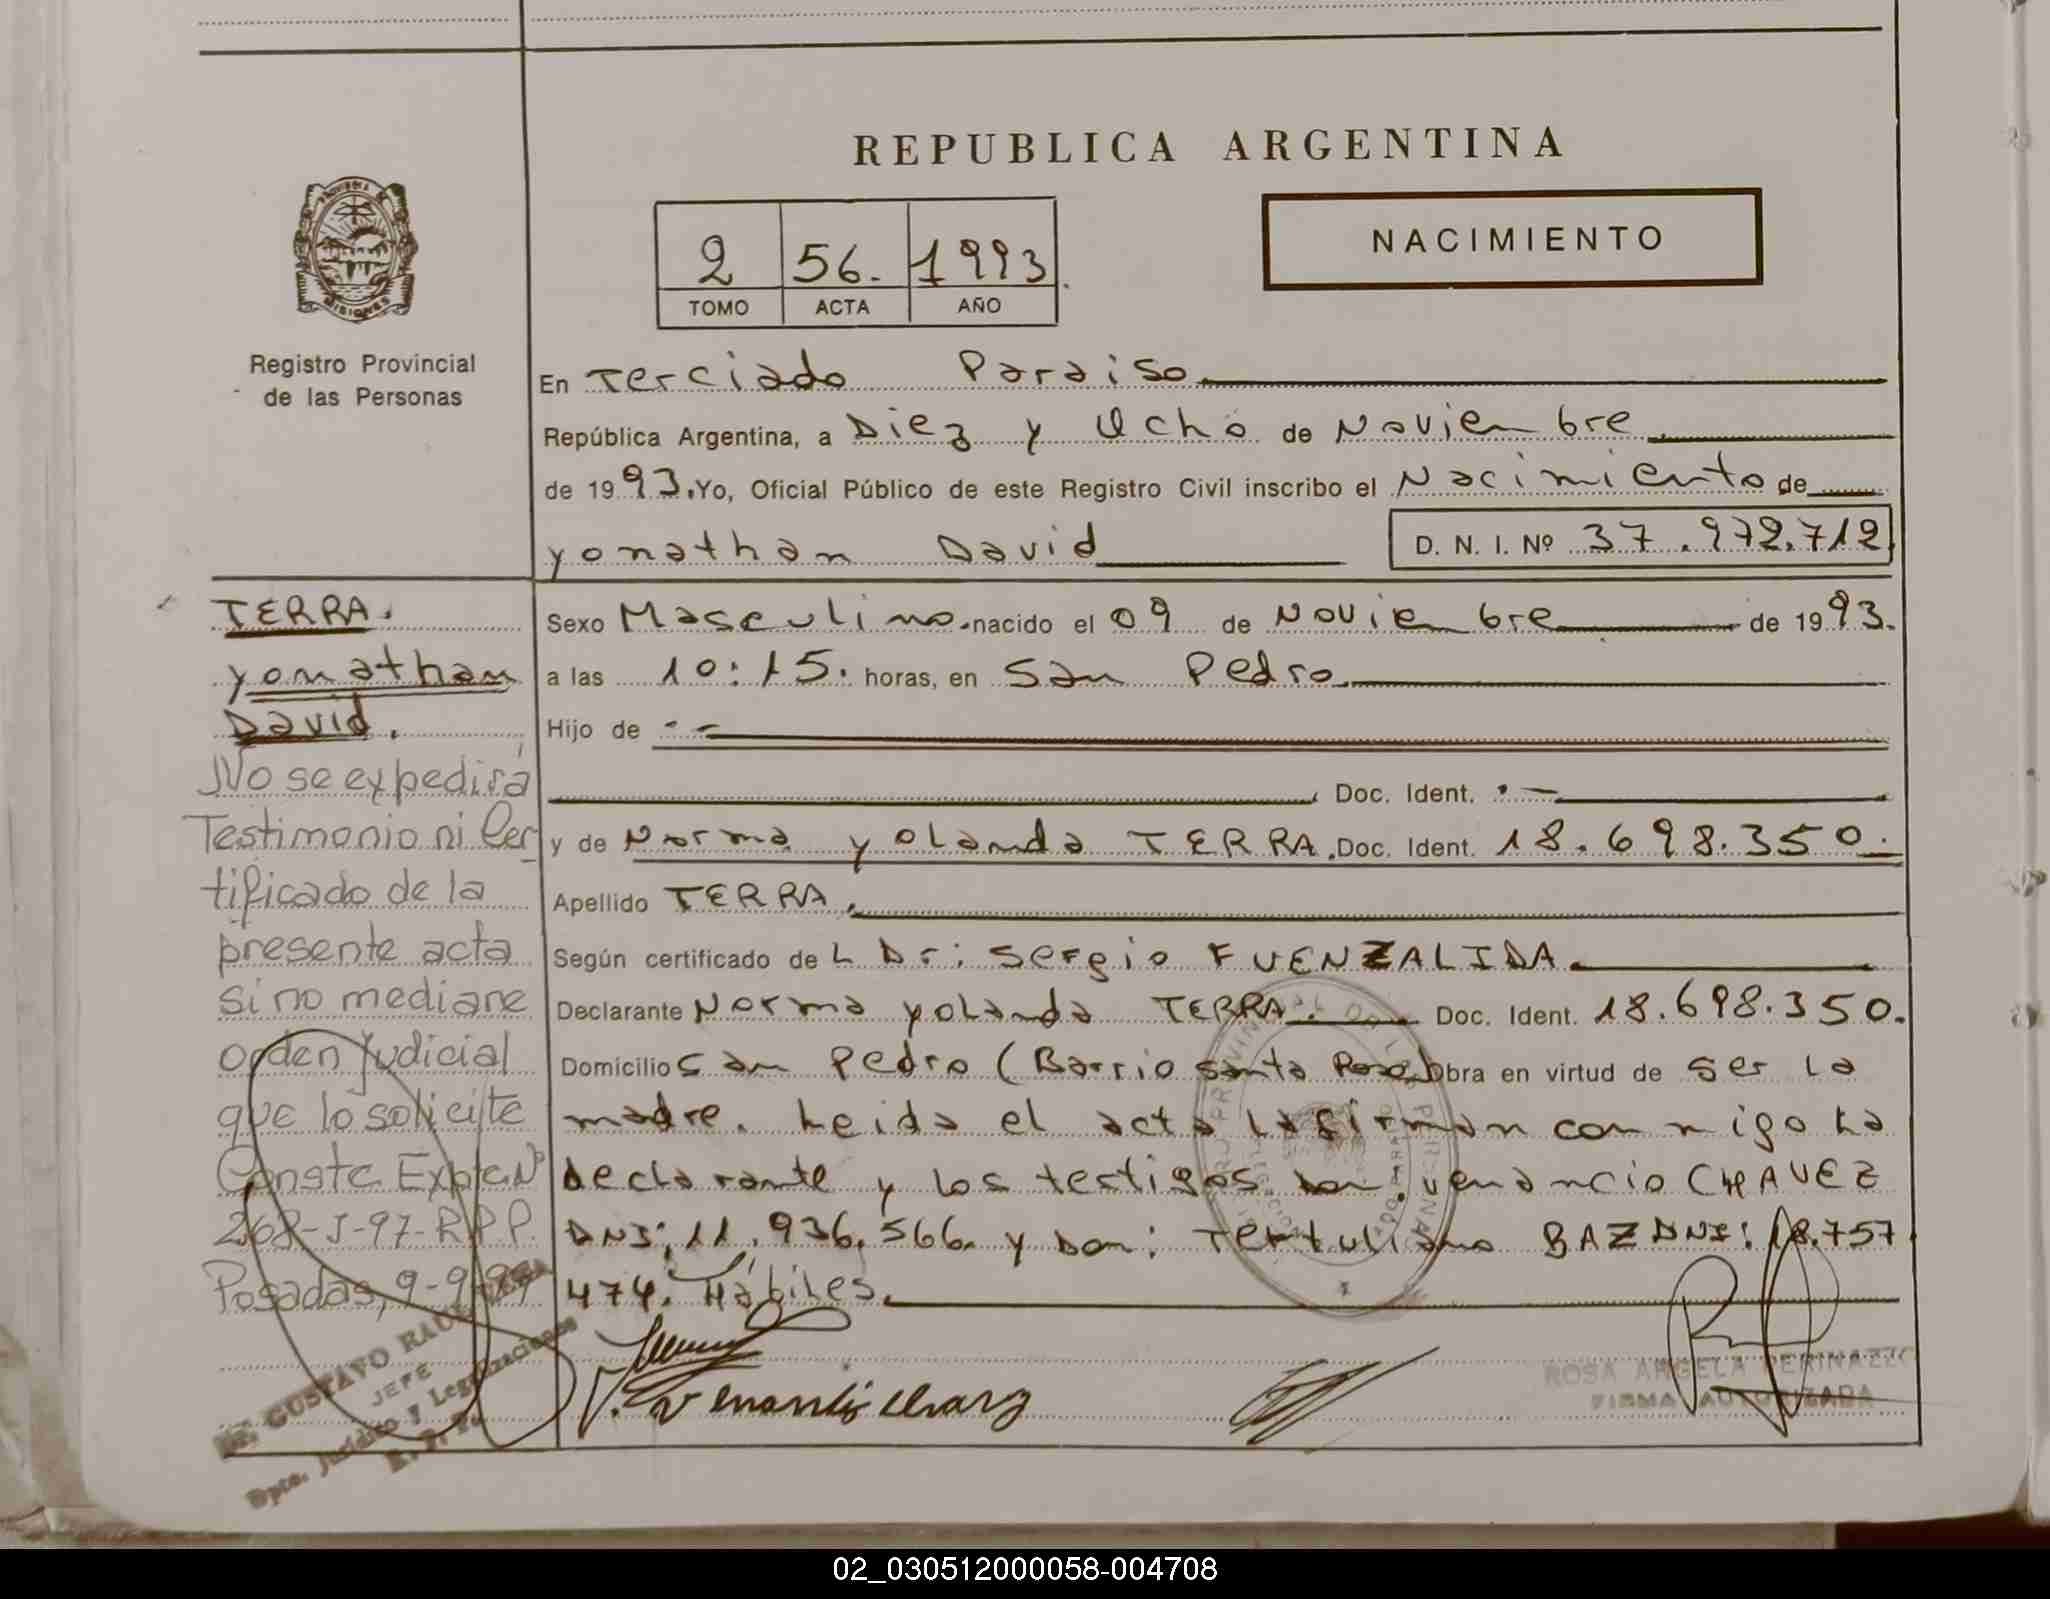 REPUBLICA ARGENTINA
NACIMIENTO
2 56. 1993.
TOMO ACTA AÑO
PROVINCIA DE
MISIONES
Registro Provincial
de las Personas
En Terciado Paraiso
República Argentina, a Diez y Ocho de Noviembre
de 1993. Yo, Oficial Público de este Registro Civil inscribo el Nacimiento de
yonathan David D. N. I. Nº 37.972.712
TERRA.
yonathan
David.
No se expedirá
Testimonio ni Cer
tificado de la
presente acta
si no mediare
orden judicial
que lo solicite
Conste Expte Nº
268-J-97-R.P.P.
Posadas, 9-9-97
GUSTAVO RAUL
JEFE
Dpto. Jurídico y Legalizaciones
R. P. P.
Sexo Masculino. nacido el 09 de Noviembre de 1993.
a las 10:15. horas, en San Pedro
Hijo de
Doc. Ident.
y de Norma yolanda TERRA. Doc. Ident. 18.698.350.
Apellido TERRA.
Según certificado de L Dr: Sergio FUENZALIDA.
Declarante Norma yolanda TERRA. Doc. Ident. 18.698.350.
Domicilio San Pedro (Barrio Santa Rosa) Obra en virtud de ser la
madre. Leida el acta la firman conmigo la
declarante y los testigos Don. Venancio CHAVEZ
DNI: 11.936.566. y Don: Tertuliano BAZ DNI: 18.757
474. Hábiles.
ROSA ANGELA PERINAZZO
FIRMA AUTORIZADA
02_030512000058-004708